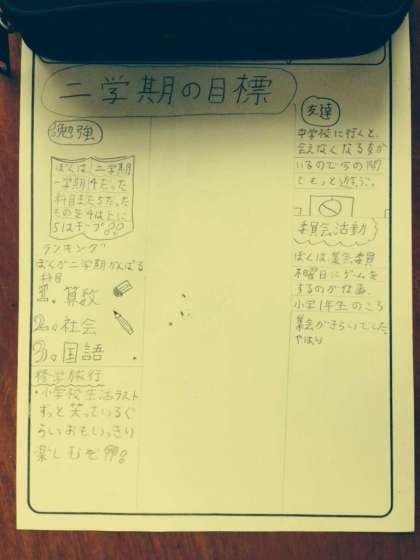 二学期の目標
勉強
ぼくは二学期
一学期4だった
科目また5だった
ものを4は上に
5はキープ!!
ランキング
ぼくが二学期がんばる
科目
1.算数
2.社会
3.国語
修学旅行
・小学校生活ラスト
ずっと笑っているぐ
らいおもいっきり
楽しむぞ!!
友達
中学校に行くと、
会えなくなる友が
いるので今の間
でもっと遊ぶ。
委員会活動
ぼくは集会委員
木曜日にゲームを
するのが仕事
小学1年生のころ
集会がきらいでした
やはり